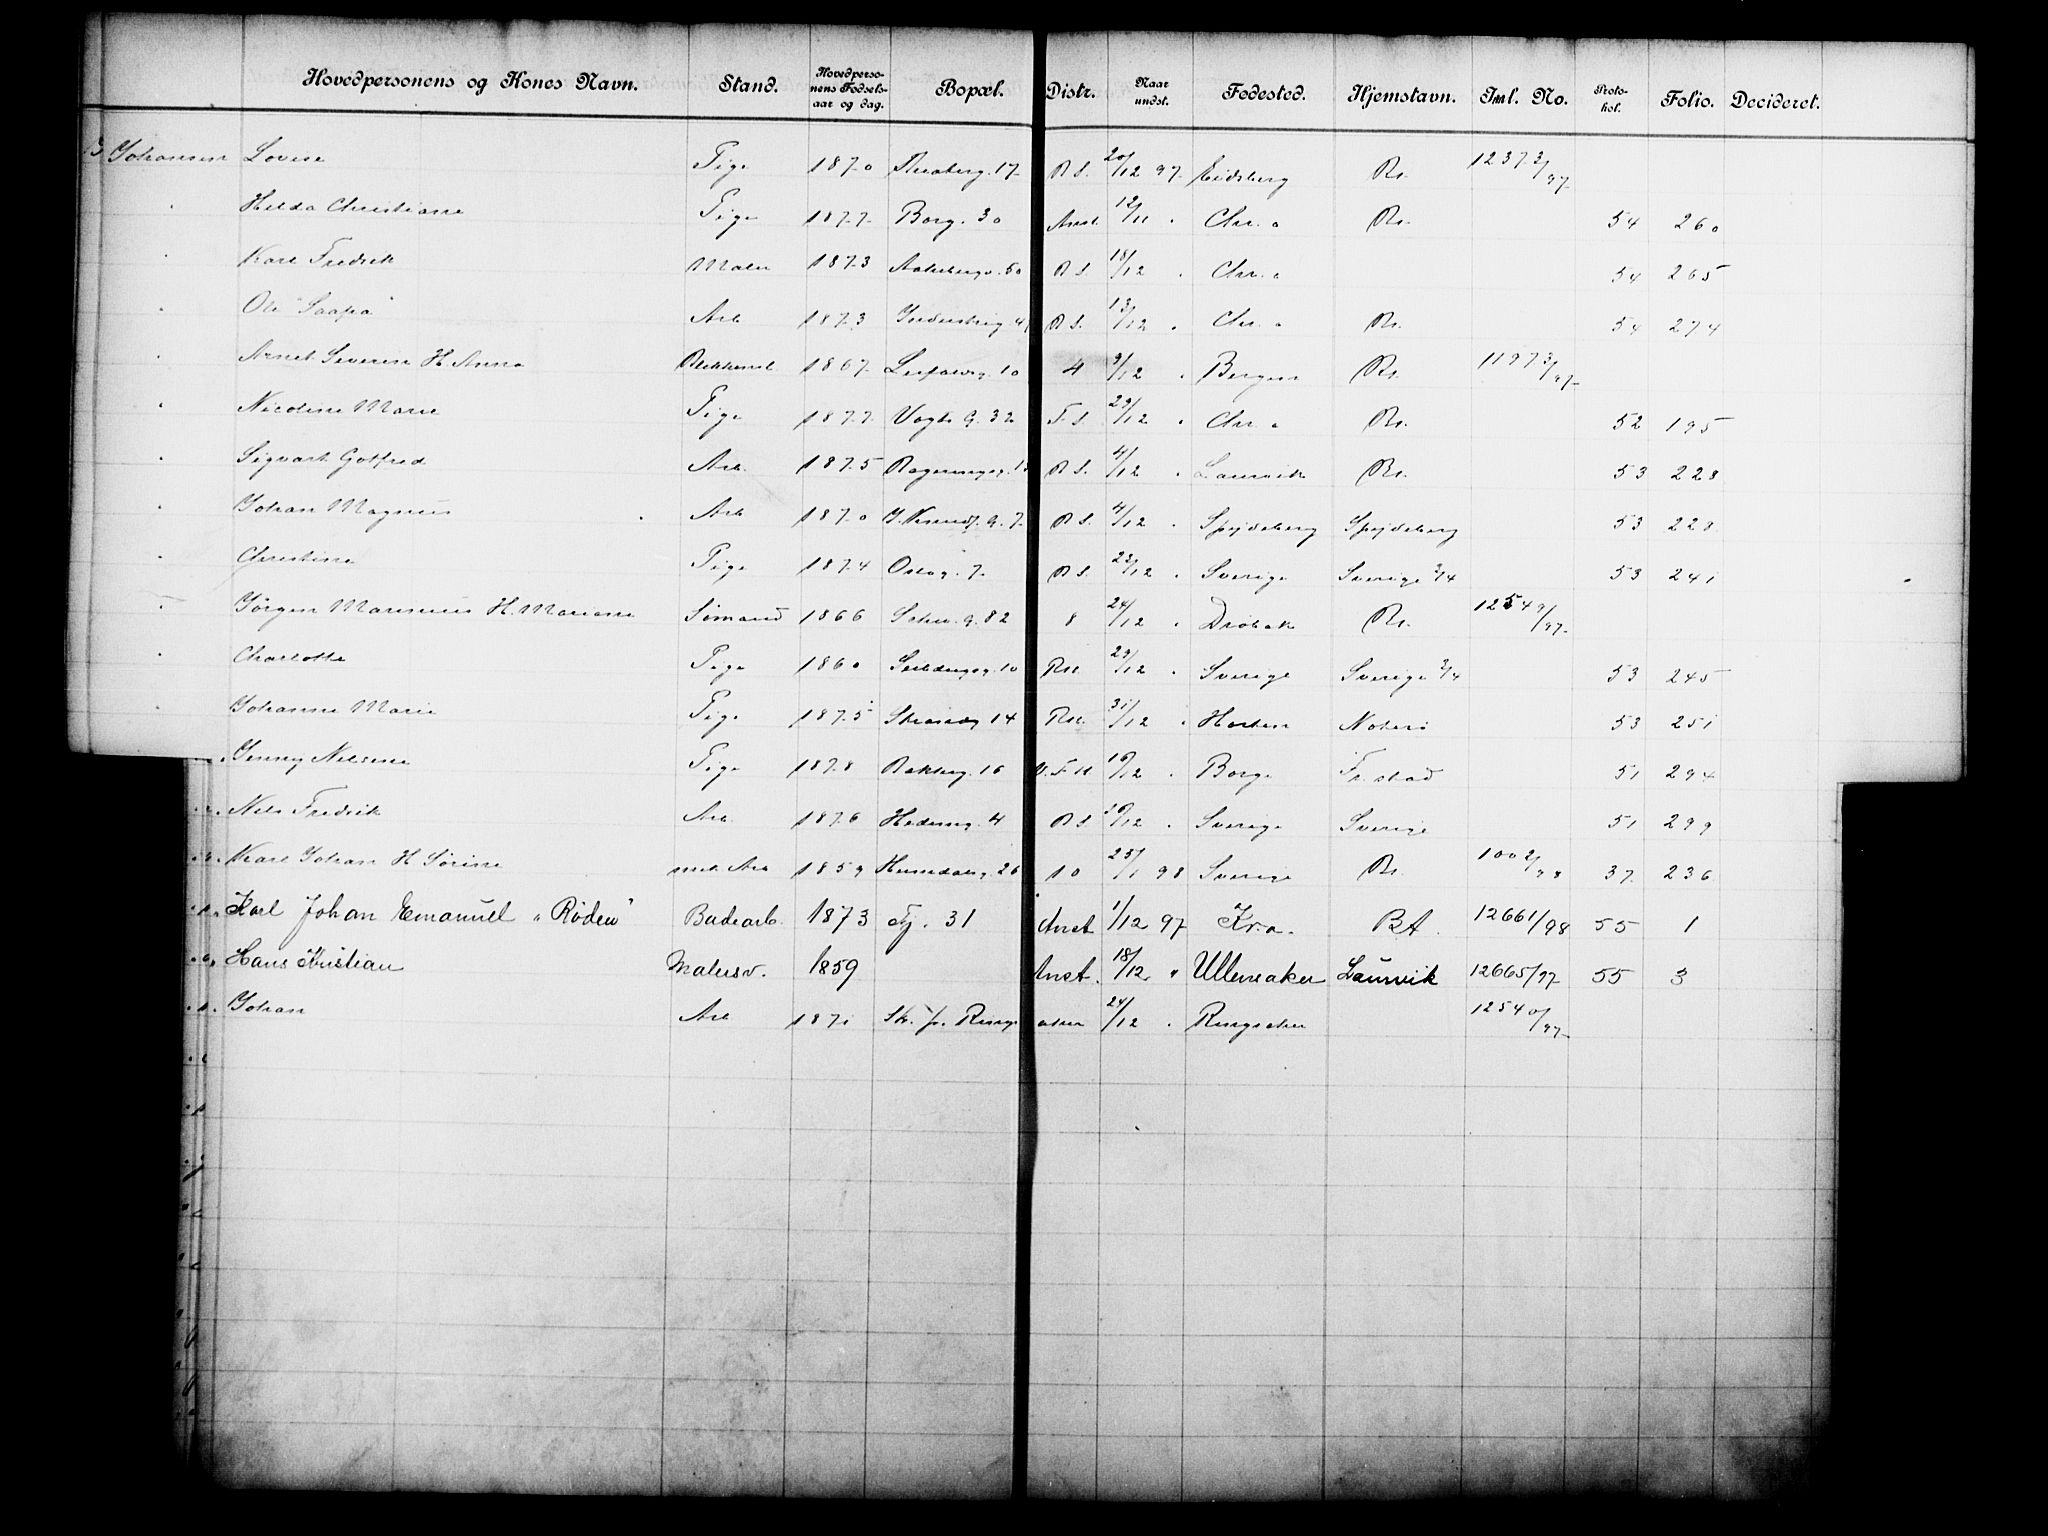 Hovedpersonens og Kones Navn. Stand. Hovedperso-nens Fødsels-aar og dag. Bopæl. Distr. Naar undst. Fødested. Hjemstavn. Jnl. No. Proto-kol. Folio. Decideret.
Johansen Lovise Pige 1870 17 R S. 20/12 97 Eidsberg Kr. 12373/97
" Hilda Christiane Pige 1877 Borg. 30 Anst. 12/11 " Chr. a Kr. 54 260
" Karl Fredrik Maler 1873 Aakebergv. 50 R S. 18/12 " Chr. a 54 265
" Ole "Saapa" Arb 1873 Industrig. R S. 13/12 " Chr. a Kr. 54 274
" Arnt Severin H. Anna Blikkensl 1867 10 4 9/12 " Bergen Kr. 11973/97
" Nicoline Marie Pige 1877 Vogts G. 32 F. S. 29/12 " Chr. a Kr. 52 195
" Sigvart Gotfred Arb. 1875 R S. 4/12 " Laurvik Kr. 53 228
" Johan Magnus Arb 1870 G. 7. R S. 4/12 " Spydeberg Spydeberg 53 228
" Christine Pige 1874 Oslog. 7. R S. 22/12 " Sverige Sverige 3/4 53 241
" Jørgen Marinius H. Mariane Sømand 1866 Schw. G. 82 8 24/12 " Drøbak Kr. 12549/97
" Charlotte Pige 1860 Seildugsg. 10 RH. 29/12 " Sverige Sverige 3/4 53 245
" Johanne Marie Pige 1875 Strandg 14 RH. 31/12 " Horten Noterø 53 251
" Jenny Nilsine Pige 1878 Bakkeg. 16 V. F H 16/12 " Borge Fr. stad 51 294
" Nils Fredrik Arb. 1876 4 R S 30/12 " Sverige Sverige 51 299
" Karl Johan H Sørine Arb 1859 26 10 25/1 98 Sverige Kr. 1002/98 37 236
" Karl Johan Emanuel "Røden" Badearb. 1873 Fj. 31 Anst 1/12 97 Kr.a. BA. 12661/98 55 1
" Hans Kristian Malersv. 1859 Anst. 18/12 " Ullensaker Laurvik 12665/97 55 3
" Johan Arb 1871 St. p. Ringsaker 24/12 " Ringsaker 12540/97